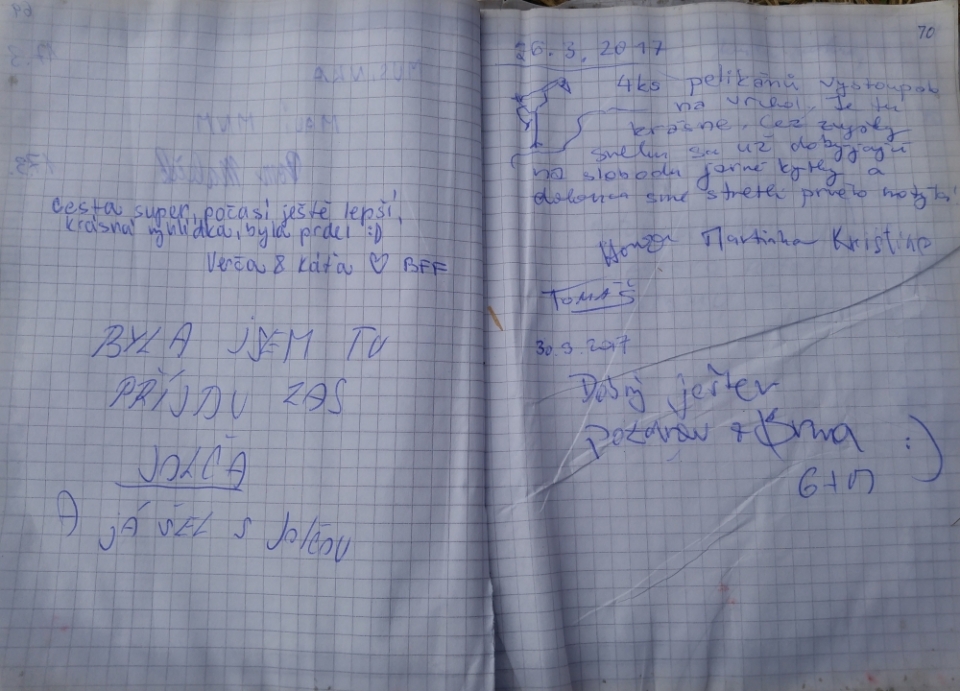 cesta super, počasí ještě lepší,
krásná vyhlídka, byla prdel :D
Verča & Káťa ♡ BFF
BYLA JSEM TU
PŘIJDU ZAS
JOLČA
A JÁ ŠEL S JOLČOU
70
26.3.2017
4ks pelikánů vystoupali
na vrchol. Je tu
krásne, cez zvyšky
snehu su už dobyjajú
na slobodu jarné kytky a
dokonca sme stretli prvého
Honza Martinka Kristína
TOMÁŠ
30.3.2017
Dobrý ještěr
Pozdrav z Brna :)
G+M